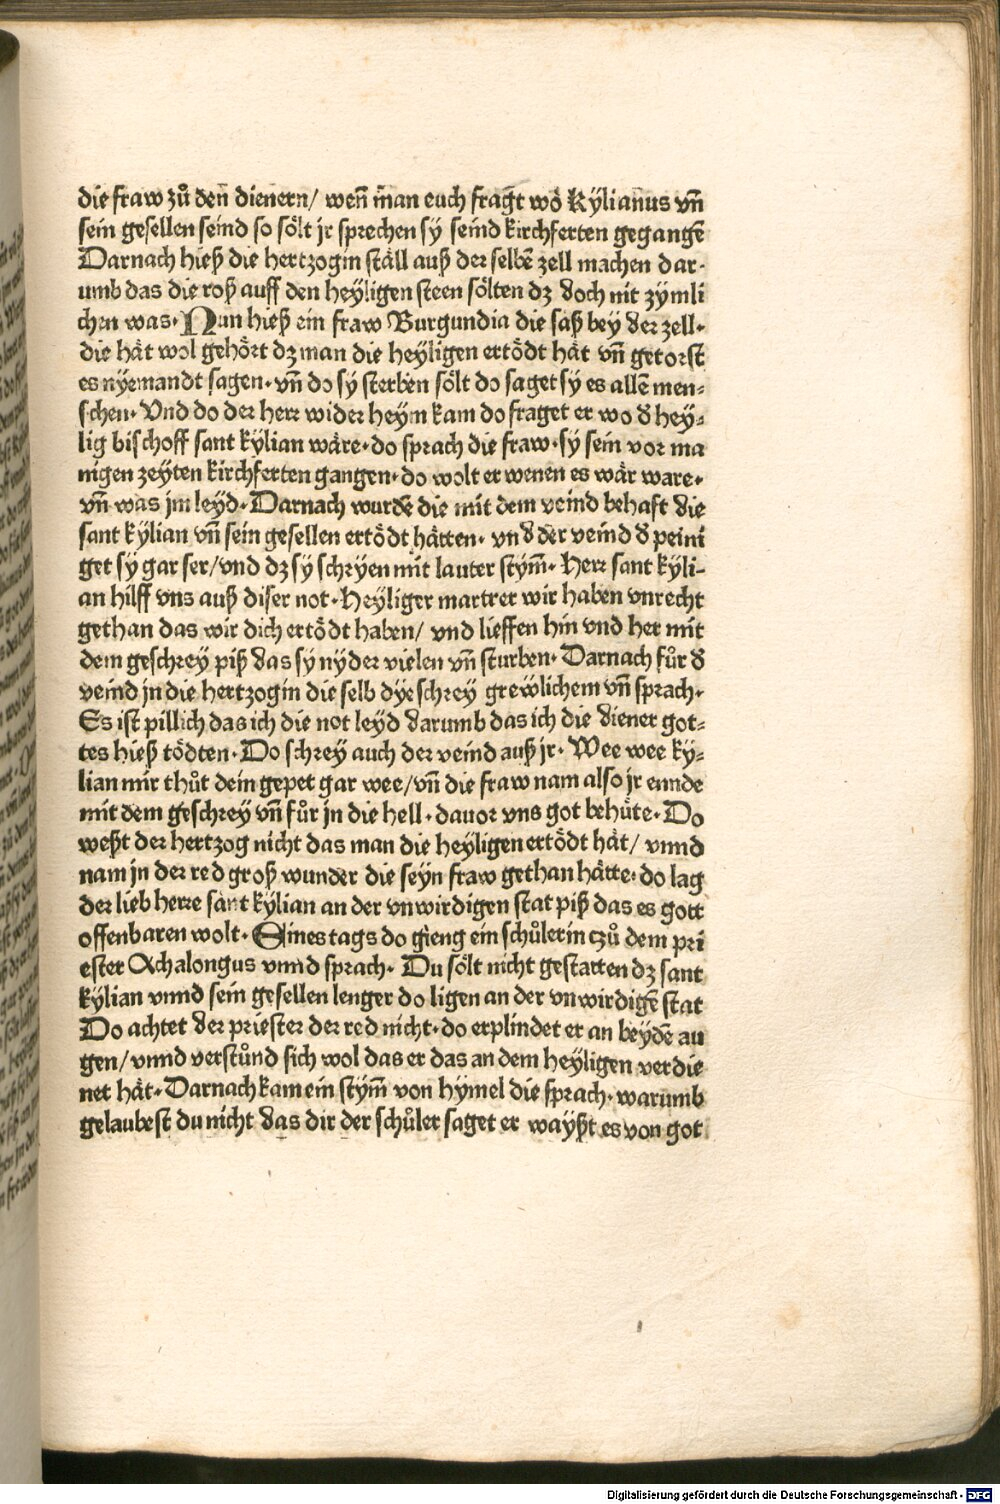 die fraw zů den dienern/ wen̄ man euch fragt wo Kylianus vn̄
sein gesellen seind so sölt jr sprechen sy seind kirchferten gegangē
Darnach hieß die hertzogin ställ auß der selbē zell machen dar-
umb das die roß auff den heyligen steen sölten dz doch nit zymli
chen was. Nun hieß ein fraw Burgundia die saß bey der zell.
die hät wol gehört dz man die heyligen ertödt hät vn̄ getorst
es nyemandt sagen. vn̄ do sy sterben sölt do saget sy es allē men-
schen. Vnd do der herr wider heym kam do fraget er wo d̕ hey-
lig bischoff sant kylian wäre. do sprach die fraw. sy sein vor ma
nigen zeyten kirchferten gangen. do wolt er wenen es wär ware.
vn̄ was jm leyd. Darnach wurdē die mit dem veind behaft die
sant kylian vn̄ sein gesellen ertödt hätten. vnd der veind d̕ peini
get sy gar ser/ vnd dz sy schryen mit lauter stym̄. Herr sant kyli-
an hilff vns auß diser not. Heyliger martrer wir haben vnrecht
gethan das wir dich ertödt haben/ vnd lieffen hin vnd her mit
dem geschrey piß das sy nyder vielen vn̄ sturben. Darnach fůr d̕
veind jn die hertzogin die selb dye schrey grewlichem vn̄ sprach.
Es ist pillich das ich die not leyd darumb das ich die diener got-
tes hieß tödten. Do schrey auch der veind auß jr. Wee wee ky-
lian mir thůt dein gepet gar wee/ vn̄ die fraw nam also jr ennde
mit dem geschrey vn̄ fůr jn die hell. dauor vns got behüte. Do
weßt der hertzog nicht das man die heyligen ertödt hät/ vnnd
nam jn der red groß wunder die seyn fraw gethan hätte. do lag
der lieb herre sant kylian an der vnwirdigen stat piß das es gott
offenbaren wolt. Eines tags do gieng ein schůler in tzů dem pri
ester Achalongus vnnd sprach. Du sölt nicht gestatten dz sant
kylian vnnd sein gesellen lenger do ligen an der vnwirdigē stat
Do achtet der priester der red nicht. do erplindet er an beydē au
gen/ vnnd verstůnd sich wol das er das an dem heyligen verdie
net hät. Darnach kam ein stym̄ von hymel die sprach. warumb
gelaubest du nicht das dir der schůler saget er wayßt es von got
Digitalisierung gefördert durch die Deutsche Forschungsgemeinschaft - DFG